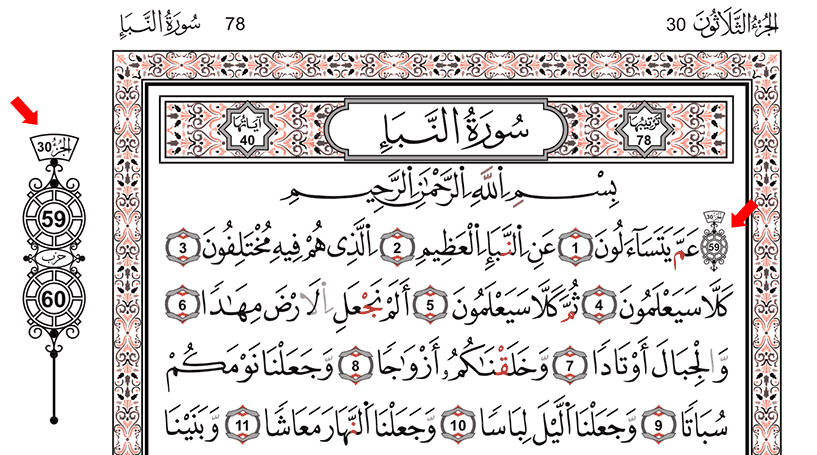 الجُزْءُ الثَّلَاثُونَ 30
78 سُورَةُ النَّبَإِ
الجُزْءُ 30
59
حزب
60
تَرْتِيبُهَا 78
سُورَةُ النَّبَإِ
آيَاتُهَا 40
بِسْمِ اِ۬للَّهِ اِ۬لرَّحْمَٰنِ اِ۬لرَّحِيمِ
59 عَمَّ يَتَسَآءَلُونَ 1 عَنِ اِ۬لنَّبَإِ اِ۬لْعَظِيمِ 2 اِ۬لَّذِى هُمْ فِيهِ مُخْتَلِفُونَ 3
كَلَّا سَيَعْلَمُونَ 4 ثُمَّ كَلَّا سَيَعْلَمُونَ 5 أَلَمْ نَجْعَلِ اِ۬لَارْضَ مِهَٰدًا 6
وَالْجِبَالَ أَوْتَادًا 7 وَخَلَقْنَٰكُمُ أَزْوَٰجًا 8 وَجَعَلْنَا نَوْمَكُمْ
سُبَاتًا 9 وَجَعَلْنَا اَ۬ليْلَ لِبَاسًا 10 وَجَعَلْنَا اَ۬لنَّهَارَ مَعَاشًا 11 وَبَنَيْنَا